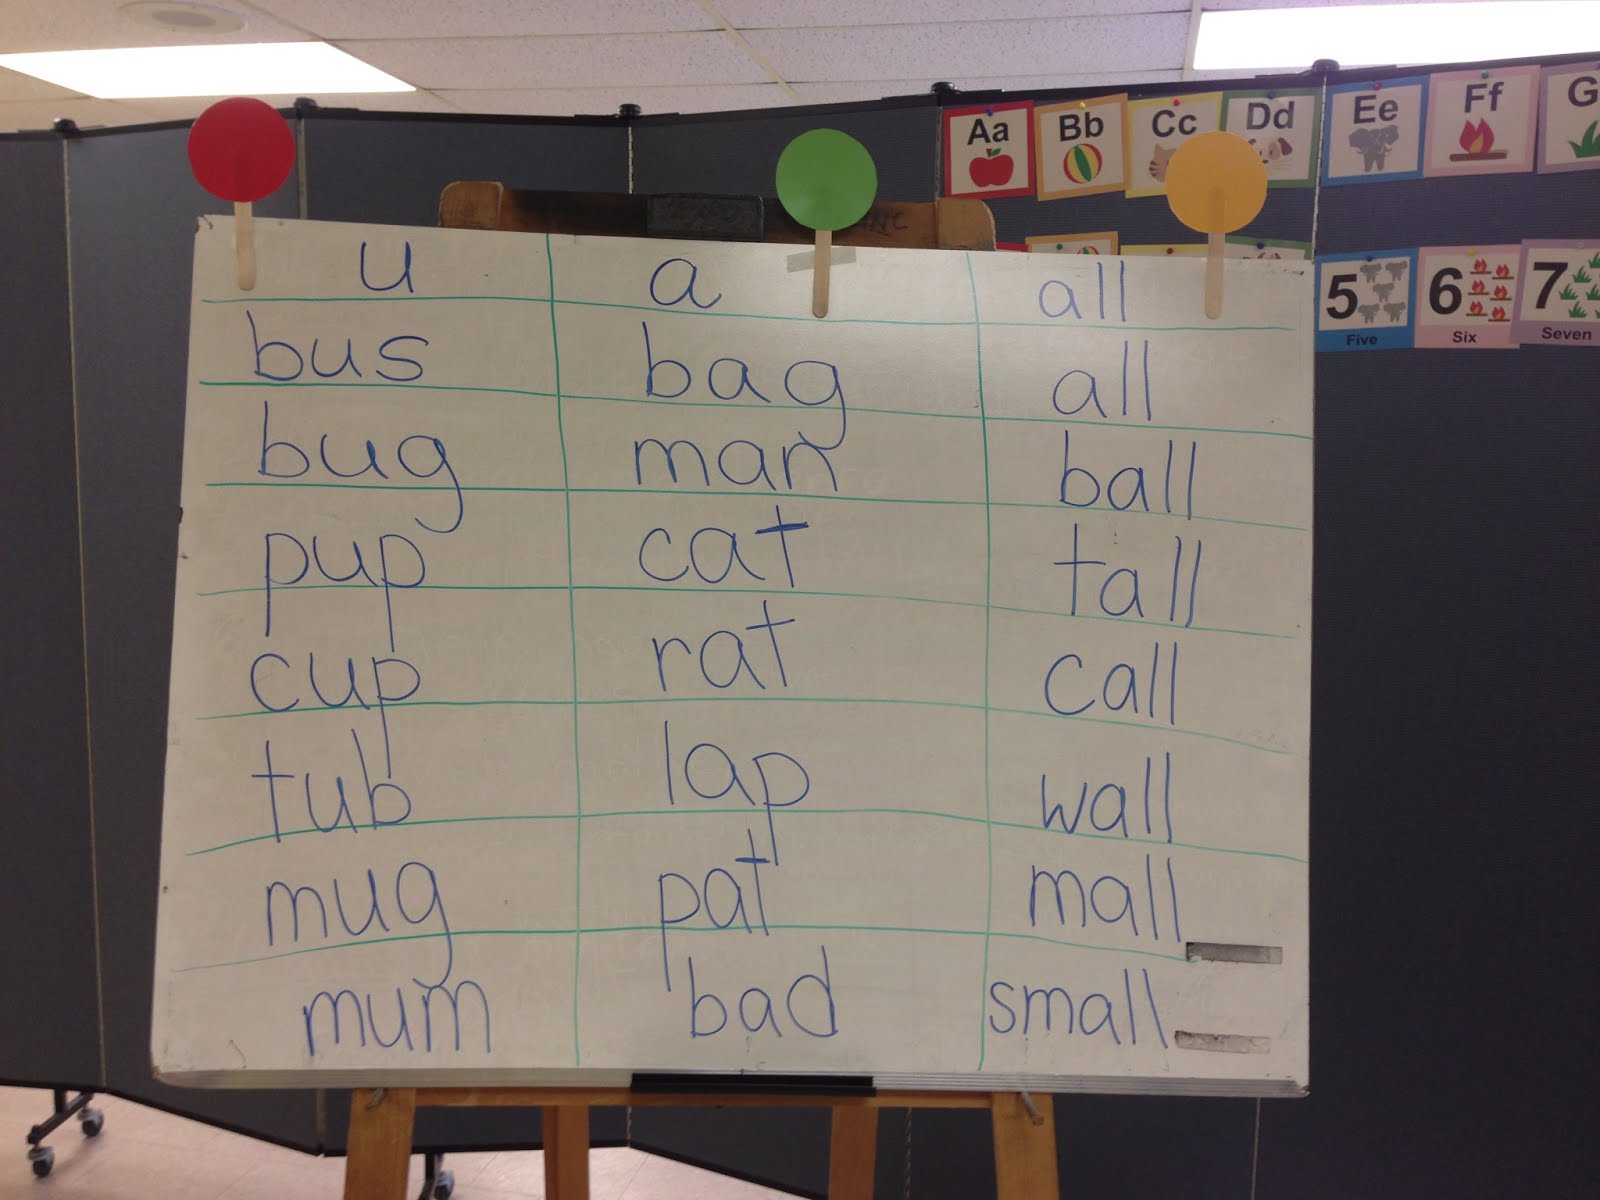 Aa Bb Cc Dd Ee Ff G
5 6 7
Five Six Seven
u a all
bus bag all
bug man ball
pup cat tall
cup rat call
tub lap wall
mug pat mall
mum bad small